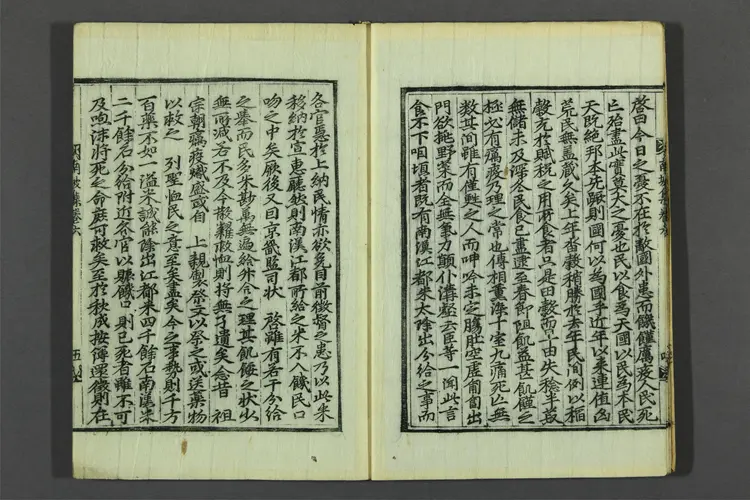 啓曰今日之憂不在於敵國外患而饑饉癘疫人民死
亡殆盡此實莫大之憂也民以食爲天國以民爲本民
天既絶邦本死蹶則國何以爲國乎近年以來連值凶
荒民無蓋藏久矣上年沓穀稍勝於去年民間例以稻
穀充於賦税之用所食者只是田穀而早田失稔半菽
無儲未及深冬民食已盡逮至春節阻飢益甚飢饉之
極必有癘疫乃理之常也傳相熏染十室九痛死亡無
數其間雖有僅甦之人而呻吟未定腸肚空虛匍匐出
門欲挑野菜而全無氣力顚仆溝壑云臣等一聞此言
食不下咽頃者既有南漢江都米太除出分給之事而
各官憑於上納民情亦欲免目前徵督之患乃以此米
移納於宣惠廳然則南漢江都所給之米不入饑民口
吻之中矣厥後又因京畿監司狀 啓雖有若干分給
之擧而民多米尠萬無遍給外令之理其飢餒之狀少
無所減若不及今散糶賑恤則將無孑遺矣念昔 祖
宗朝癘疫熾盛或自 上親製祭文以祭之或送藥物
以救之 列聖恤民之意至矣盡矣今之事勢則千方
百藥不如一溢米誠能除出江都米四千餘石南漢米
二千餘石分給附近各官以賑饑口則已死者雖不可
及呴沫將死之命庶可救矣至於秋成按簿還徵則在
南坡集卷六
五